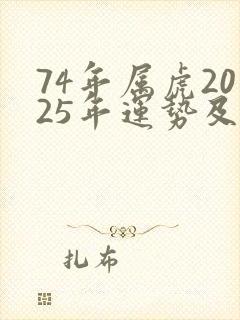 74年属虎20
25年運勢及
扎布